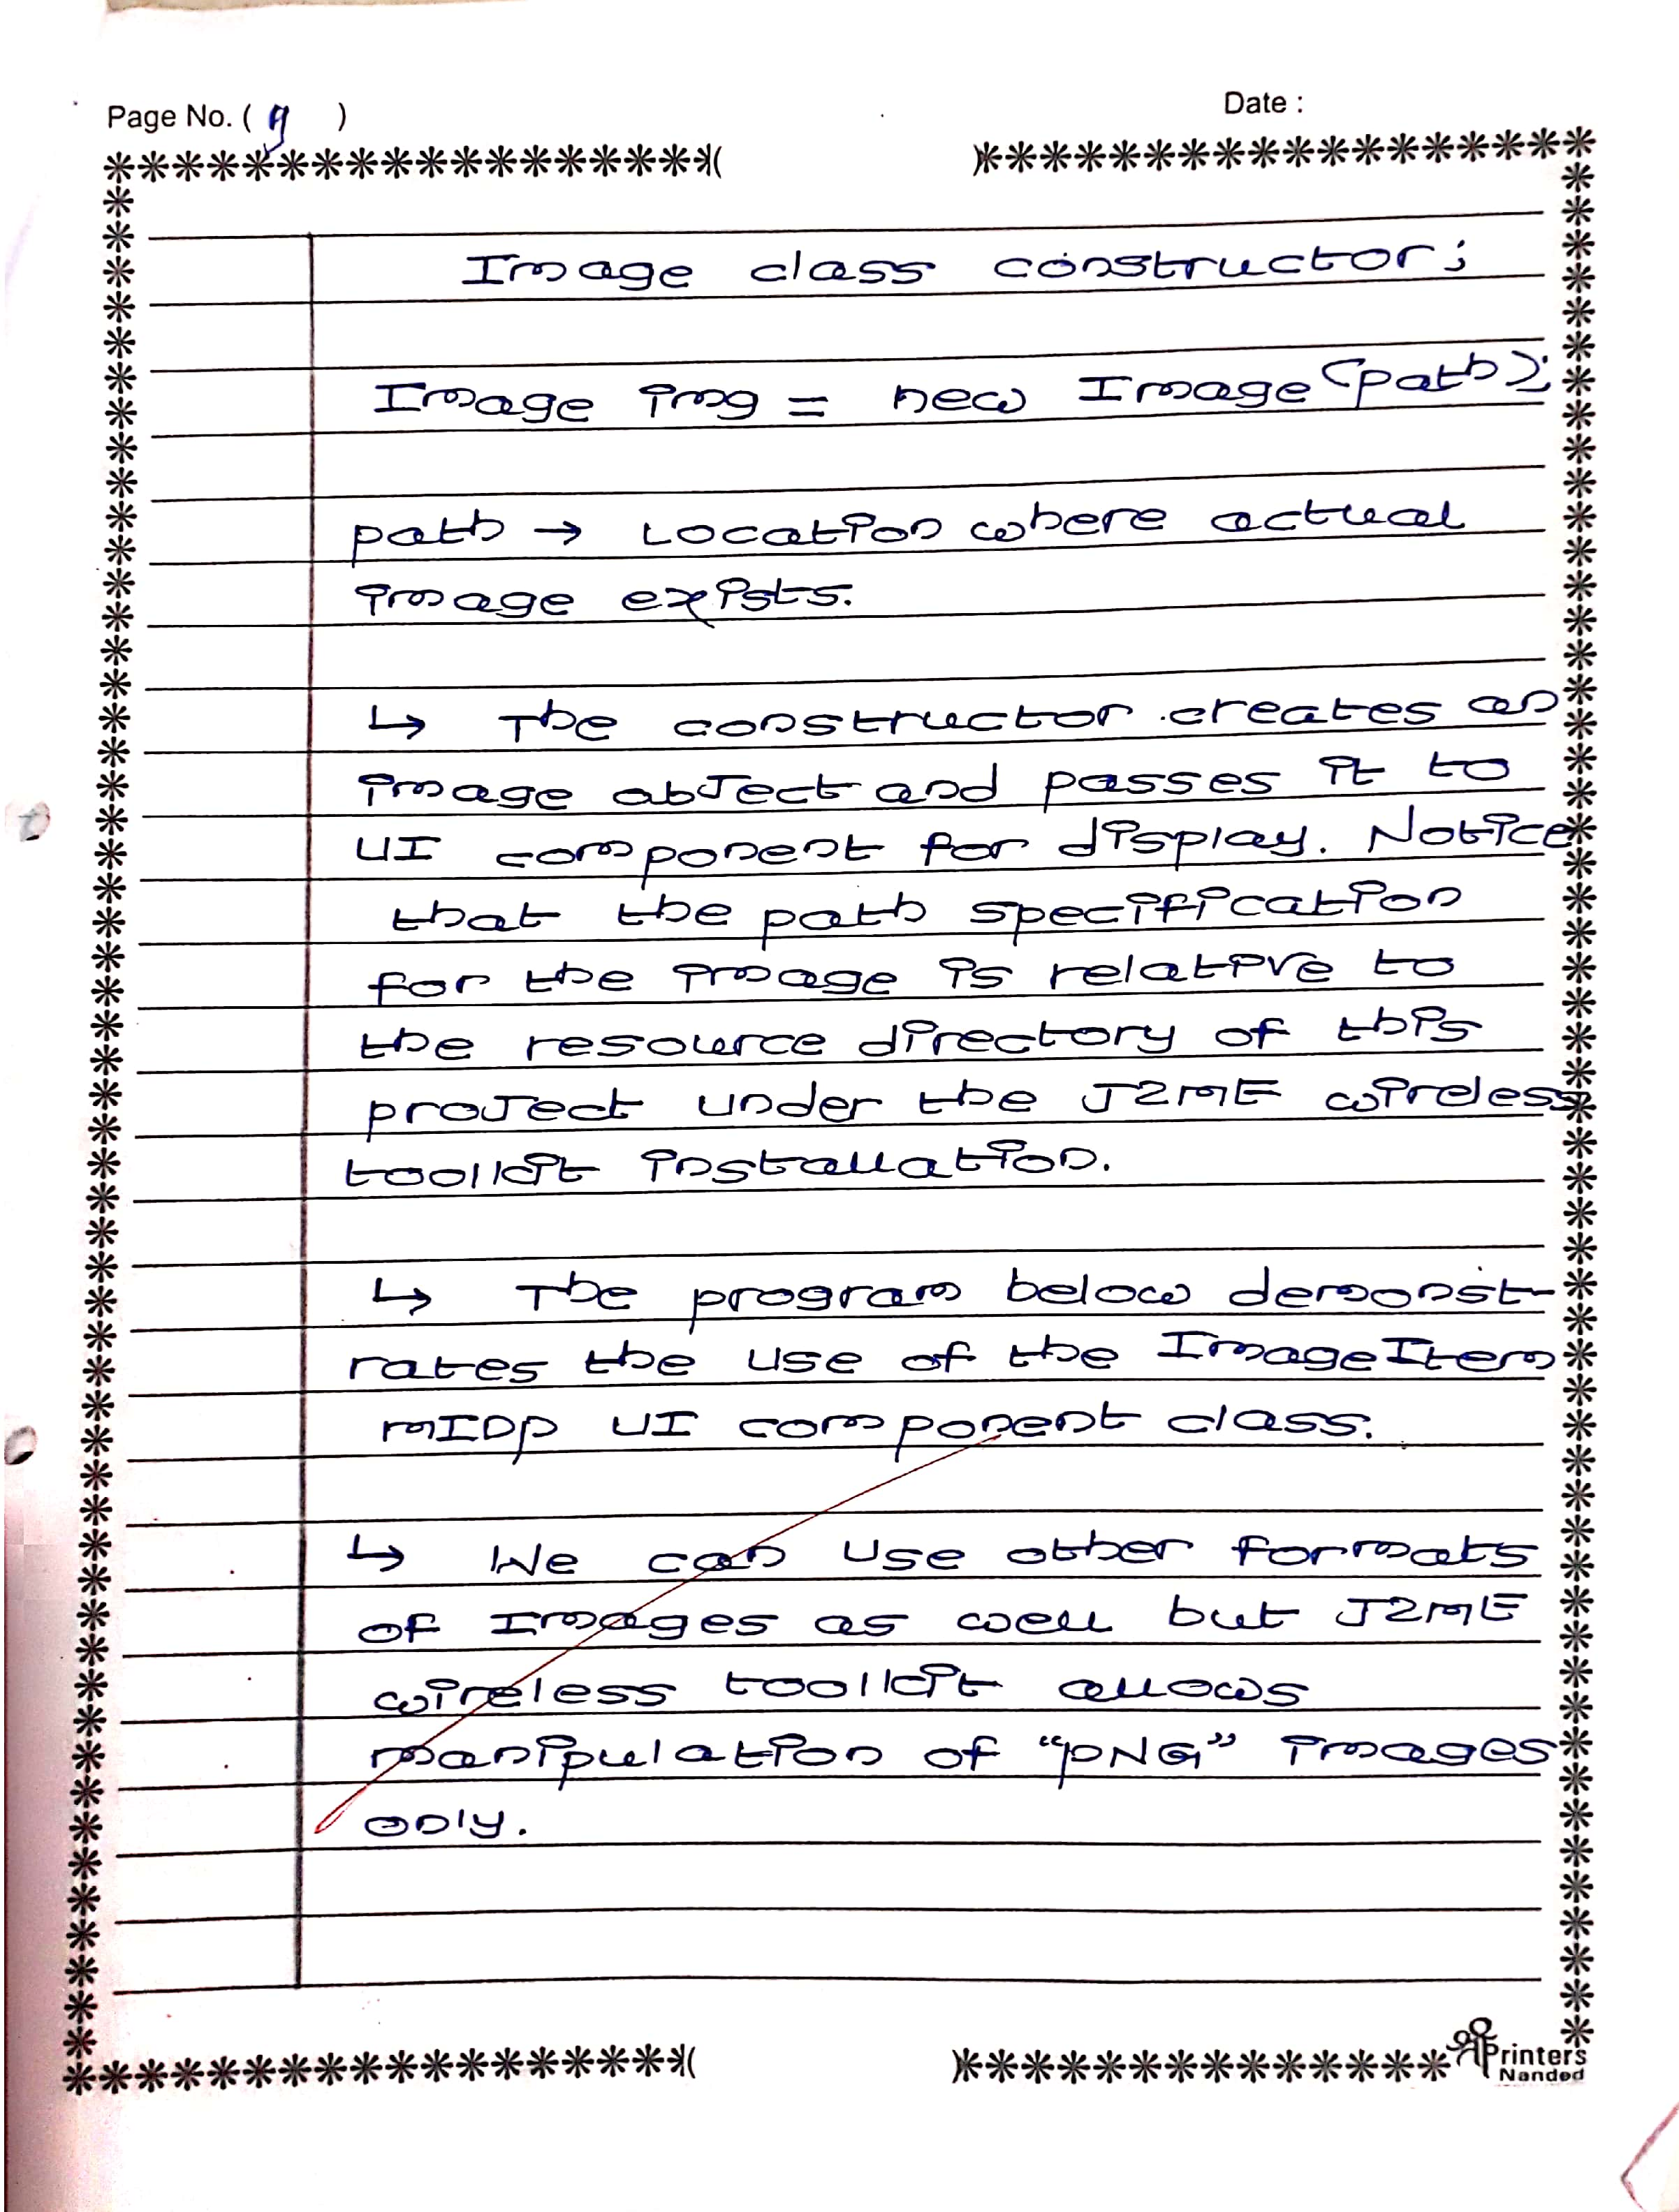 Page No. ( 9 )
Date :
Image class constructor;
Image img = new Image (path);
path → Location where actual
image exists.
↳ The constructor creates an
image abject and passes it to
UI component for display. Notice
that the path specification
for the image is relative to
the resource directory of this
project under the J2ME wireless
toolkit installation.
↳ The program below demonst-
rates the use of the ImageItem
MIDP UI component class.
↳ We can use other formats
of Images as well but J2ME
wireless toolkit allows
manipulation of "PNG" images
only.
Printers
Nanded